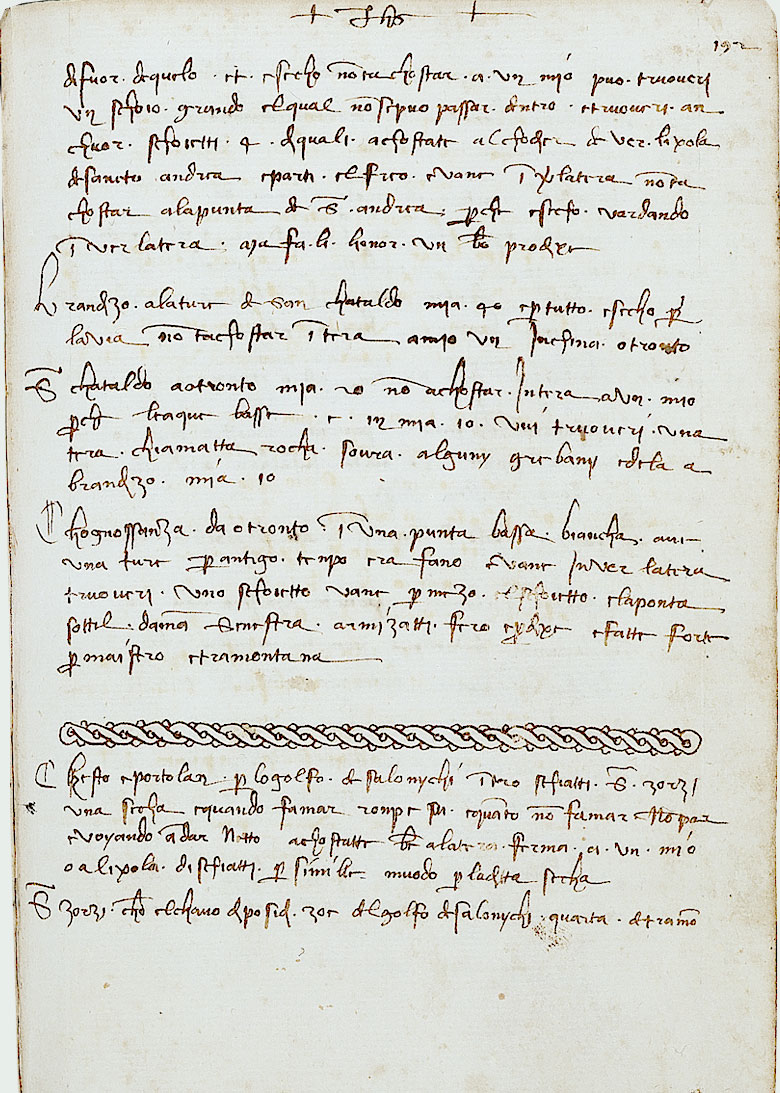 + yhs +
192
difuor . dequelo . et . esecho non ta chostar . a . un mio puo . trvoveri
un schoio . grando elqual non sepuo passar . dentro . etrvoveri . an
chuor . schoietti . 4 . diquali . achostate al choder de ver . lixola
desancto andrea eparti . elfreo . evane in ver latera non ta
chostar alaponta de S . andrea . perche esecho . vardando
in ver latera . ma fa . li . honor . un bon prodexe
Brandizo . alature de san chataldo mia . 40 eper tutto . esecho per
lavia non tachostar in tera amio un inchina . otronto
S chataldo aotronto mia . 20 non achostar . intera aun . mio
perche leaque basse . e . in mia . 10 . vui trvoveri . una
tera . chiamatta rocha . sovra . alguny grebany edela a
brandizo . mia . 10
Chognossanza . da otronto . in una . punta bassa . biancha . ave
una ture per antigo . tenpo era fano evane inver latera
trvoveri . uno schoietto vane per mezo . elschoietto . elaponta
sottil . daman senestra . armizatti . fero eprodexe efatte forte
per maistro etramontana
Chesto eportolan . per logolfo . de salonychi intro schiatti . S . zorzi
una secha equando famar ronpe su . equando non famar . no par
evoyando andar netto achostatte ben alatera . ferma . a . un . mio
o alixola . di schiatti . per simille muodo per ladita secha
S zorzi . chon elchavo de posidi . zoe delgolfo desalonychi . quarta . de tramon